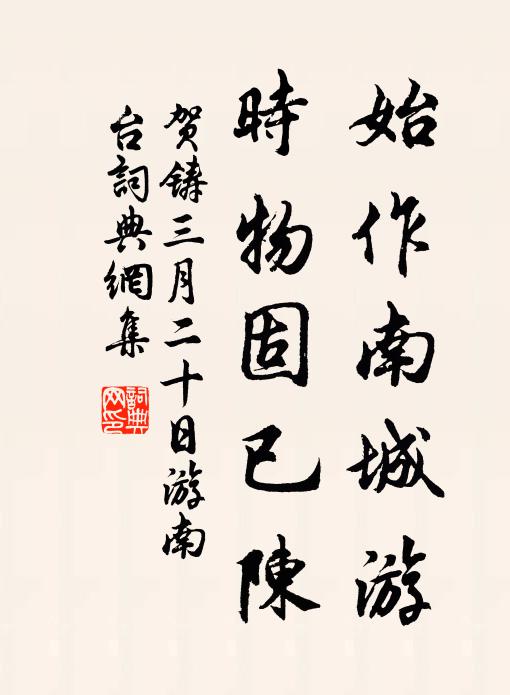 始作南城游
時物固已陳
賀鑄三月二十日游南
台詞典網集
詞典
网印